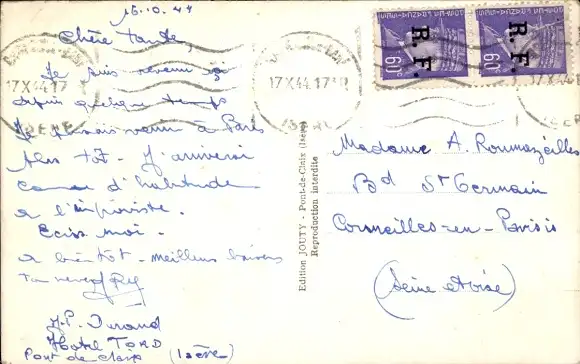 16.10.44
Chère tante,
Je suis revenu ici
depuis quelque temps
Je pensais venir à Paris
plus tôt. J'arriverai
comme d'habitude
a l'improviste.
Ecris moi.
a bientôt - meilleurs baisers
J.P. Durand
Hotel TORD
Pont de claix (Isère)
17 X 44. 17
ISERE
17 X 44. 17
ISERE
17 X 44
R. F.
60
R. F.
60
Edition JOUTY - Pont-de-Claix (Isère)
Reproduction interdite
Madame A. Roumazeilles
Bd St Germain
Cormeilles-en-Parisis
(Seine et Oise)